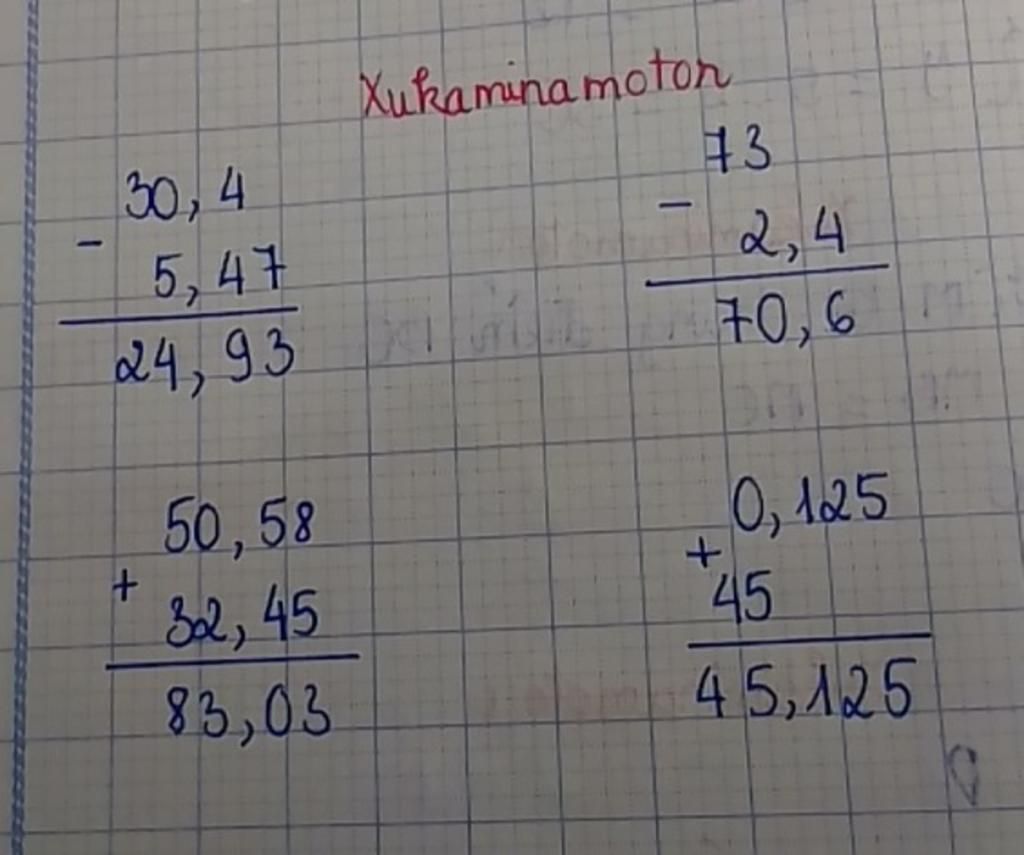 Xukaminamoton
30,4
-
5,47
24,93
73
-
2,4
70,6
50,58
+
32,45
83,03
0,125
+
45
45,125